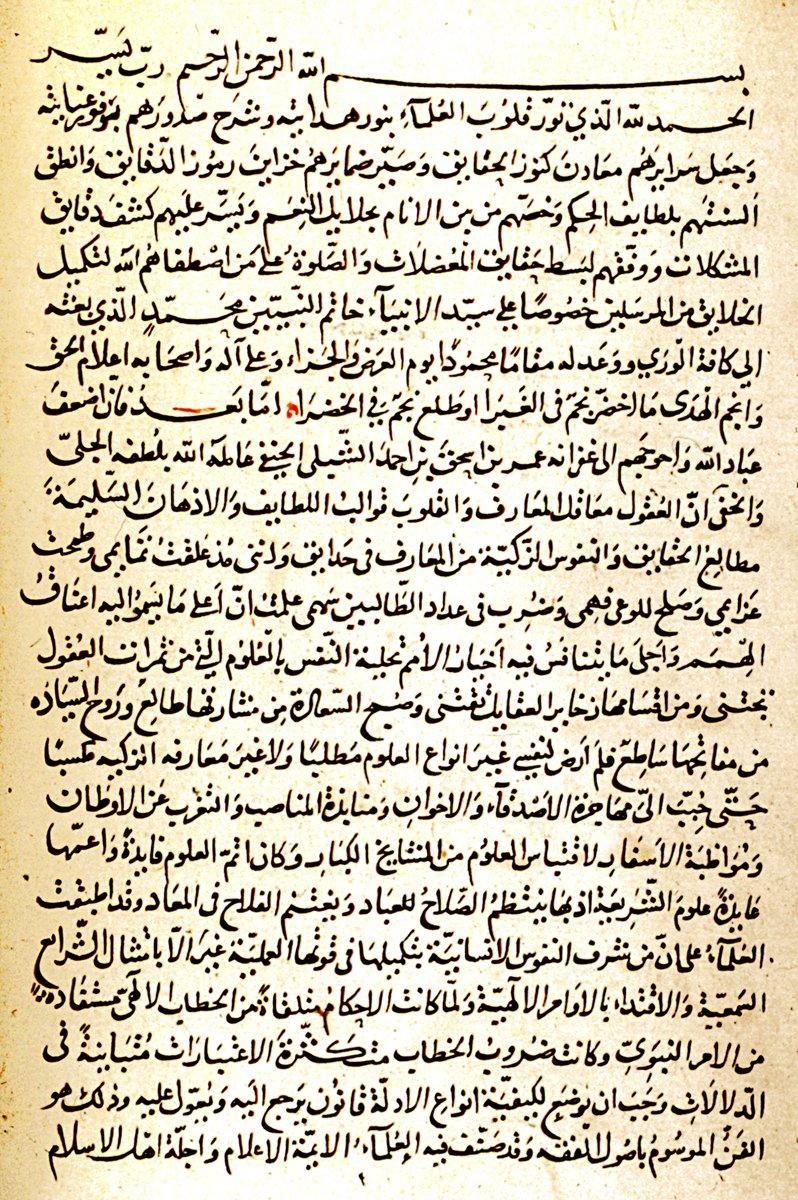 بسم الله الرحمن الرحيم رب يسر
الحمد لله الذي نور قلوب العلماء بنور هدايته وشرح صدورهم بوفور عنايته
وجعل سرايرهم معادن كنوز الحقايق وصير ضمايرهم خزاين رموز الدقايق وانطق
السنتهم بلطايف الحكم وخصهم من بين الانام بجلايل النعم ويسر عليهم كشف دقايق
المشكلات ووفقهم لبسط حقايق المعضلات والصلوة على من اصطفاهم الله لتكميل
الخلايق من المرسلين خصوصا على سيد الانبياء خاتم النبيين محمد الذي بعثه
الى كافة الورى ووعد له مقاما محمودا يوم العرض والجزاء وعلى آله واصحابه اعلام الحق
وانجم الهدى ما اخضر نجم فى الغبرا او طلع نجم في الخضراء اما بعد فان اضعف
عباد الله واحوجهم الى غفرانه عمر بن اسحق بن احمد الشبلى الحنفى عامله الله بلطفه الجلي
والخفى ان العقول معاقل المعارف والقلوب قوالب اللطايف والاذهان السليمة
مطالع الحقايق والنفوس الزكية من المعارف فى حدايق وانى مذ علقت تمايمى وطمحت
عزايمي وصلح للوعى فهمى وضرب فى عداد الطالبين سهمى علمت ان اعلى ما يسموا اليه اعناق
الهمم واجلى ما يتنافس فيه اخيار الامم تحلية النفس بالعلوم التي من ثمرات العقول
تجتنى ومن اقسامها ذخاير العقايل تقتنى وصبح السعادة من مشارقها طالع وروح السيادة
من مفاتحها ساطع فلم ارض لنفسي غير انواع العلوم مطلبا ولا غير معارفه الزكيه مكسبا
حتى حبب الي مهاجرة الاصدقاء والاخوان ومنابذة المناصب والتغرب عن الاوطان
ومواظبة الاسفار لاقتباس العلوم من المشايخ الكبار وكان اتم العلوم فايدة واعمها
عايدة علوم الشريعة اذ بها ينتظم الصلاح للعباد ويغتنم الفلاح فى المعاد وقد اطبقت
العلماء على ان من شرف النفوس الانسانية بتكميلها فى قوتها العملية غير الا بامتثال الشرايع
السمعية والاقتداء بالاوامر الالهية ولما كانت الاحكام متلقاة من الخطاب الالهى مستفادة
من الامر النبوي وكانت ضروب الخطاب متكثرة الاعتبارات متباينة فى
الدلالات وجب ان يوضع لكيفية انواع الادلة قانون يرجع اليه ويعول عليه وذلك هو
الفن الموسوم باصول الفقه وقد صنف فيه العلماء الايمة الاعلام واجلة اهل الاسلام